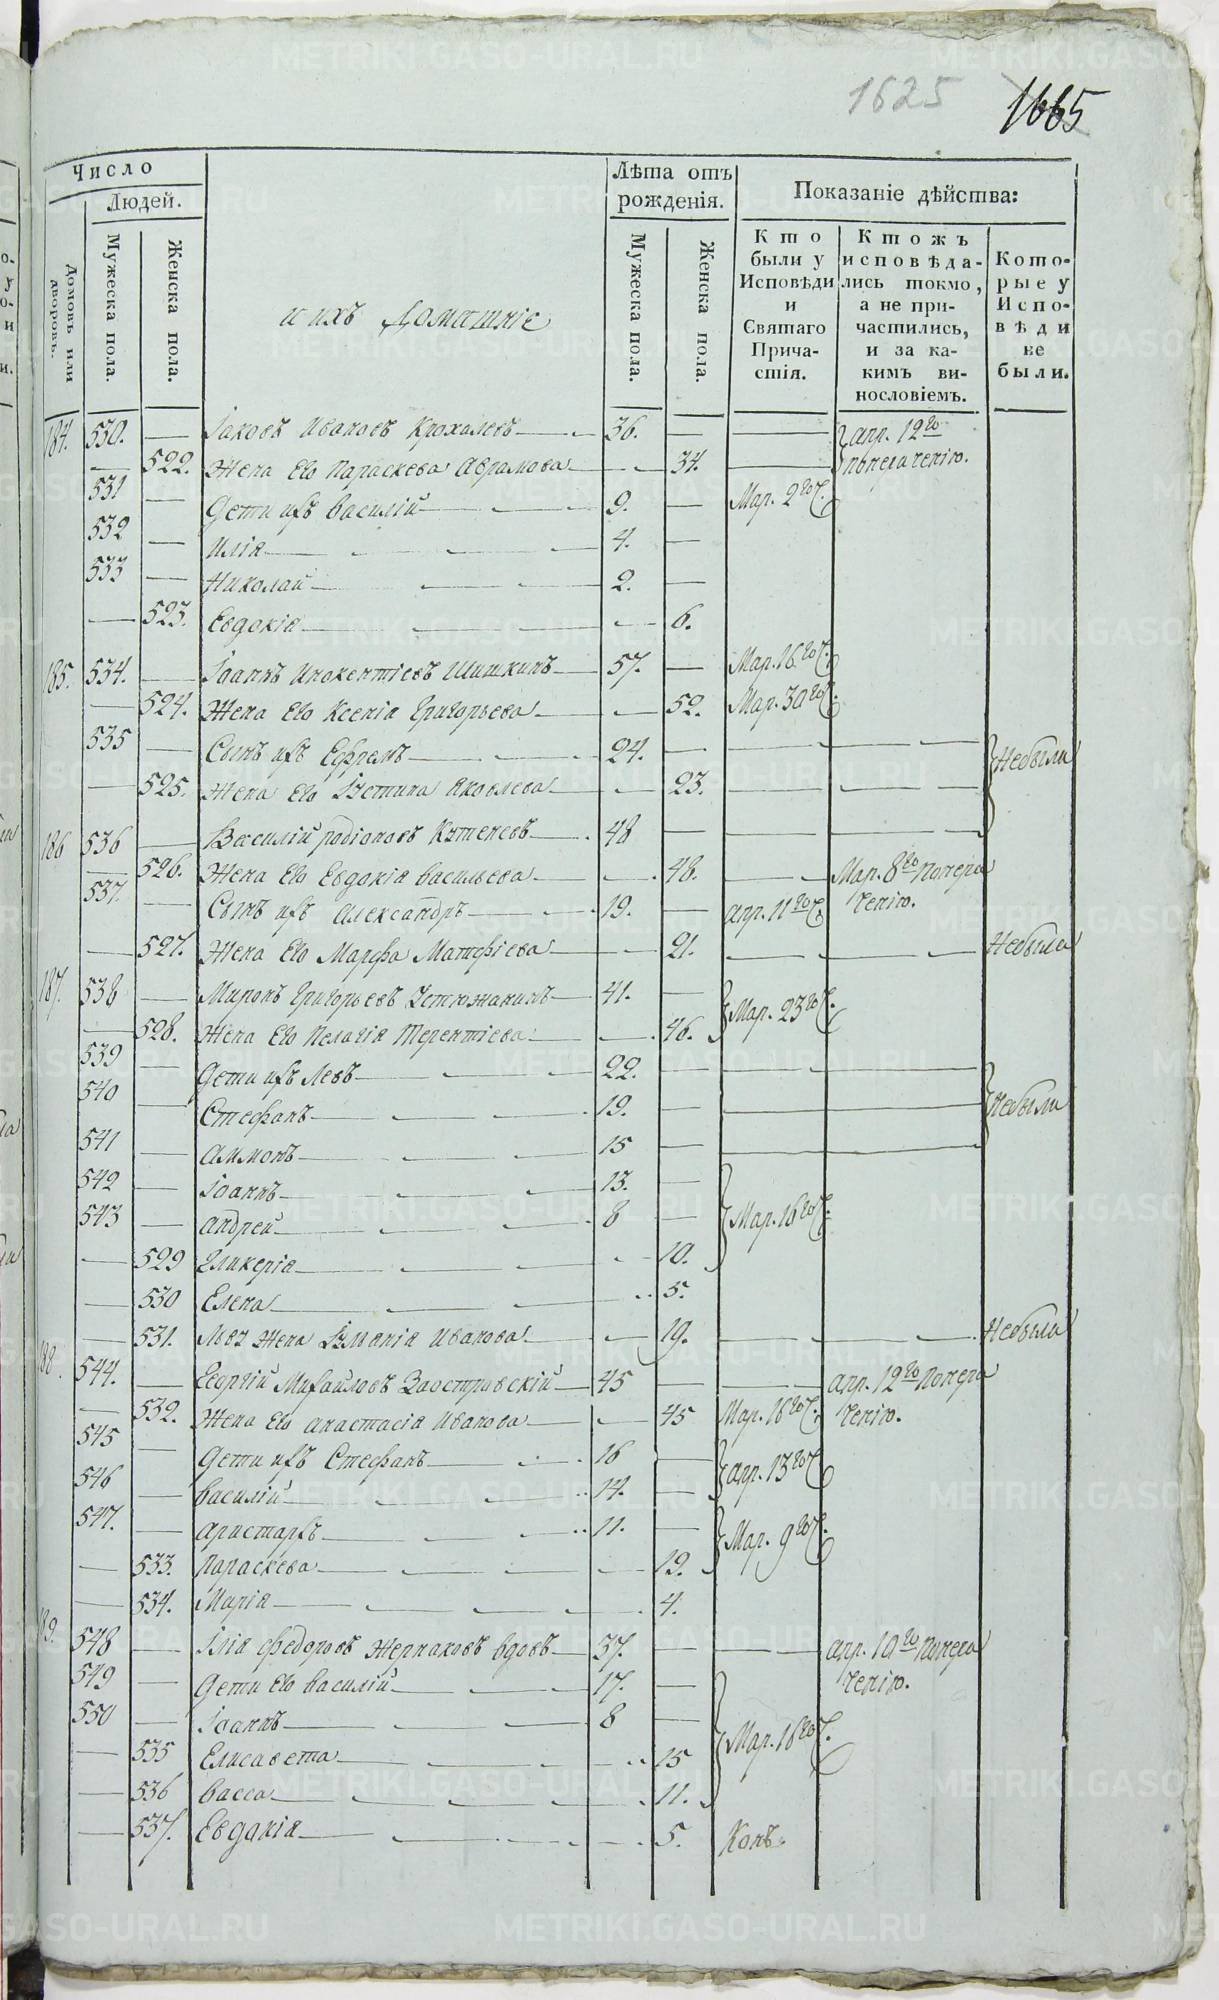 1625 1665
Число
Людей.
Домовъ или дворовъ.
Мужеска пола.
Женска пола.
и ихъ домашніе
Лѣта отъ рожденія.
Мужеска пола.
Женска пола.
Показаніе дѣйства:
Кто были у Исповѣди и Святаго Причастія.
Ктожъ исповѣдались токмо, а не причастились, и за какимъ винословіемъ.
Которые у Исповѣди не были.
184. 530. — Іаковъ Ивановъ Крохалевъ — 36. — — апр. 12го
— 522. Жена Его Параскева Аврамова — 34. — по нераченію.
531 — Дети ихъ Василій — 9. — Мар. 2го
532 — Илія — 4. —
533 — Николай — 2. —
— 523. Евдокія — 6.
185. 534. — Іоаннъ Инокентіевъ Шишкинъ — 57. — Мар. 16го
— 524. Жена Его Ксенія Григорьева — 52. Мар. 30го
535 — Сынъ ихъ Ефремъ — 24. — — — Небыли
— 525. Жена Его Іустина Яковлева — 23. — —
186 536 — Василій Родіоновъ Кутеневъ — 48 — — —
— 526. Жена Его Евдокія Васильева — 48. — Мар. 8го Понера
537. — Сынъ ихъ Александръ — 19. — апр. 11го ченію.
— 527. Жена Его Марфа Матфіева — 21. — — Небыла
187. 538 — Миронъ Григорьевъ Устюжанинъ — 41. — Мар. 23го
— 528. Жена Его Пелагія Терентіева — 46.
539 — Дети ихъ Левъ — 22. — — —
540 — Стефанъ — 19. — — — Небыли
541 — Аммонъ — 15 — — —
542 — Іоаннъ — 13. —
543 — Андрей — 8 — Мар. 16го
— 529 Гликерія — 10.
— 530 Елена — 5.
— 531. Жена Іуліанія Иванова — 19. — — Небыла
188. 544. — Георгій Михайловъ Заостровскій — 45 — — апр. 12го Понера
— 532. Жена Его Анастасія Иванова — 45 Мар. 16го ченію.
545 — Дети ихъ Стефанъ — 16 — апр. 13го
546 — Василій — 14. —
547. — Аристархъ — 11. — Мар. 9го
— 533. Параскева — 19.
— 534. Марія — 4.
189. 548 — Илія Федоровъ Жернаковъ вдовъ — 37. — — апр. 10го Понера
549 — Дети Его Василій — 17. — ченію.
550 — Іоаннъ — 8 —
— 535 Елисавета — 15 Мар. 16го
— 536 Васса — 11.
— 537. Евдокія — 5.